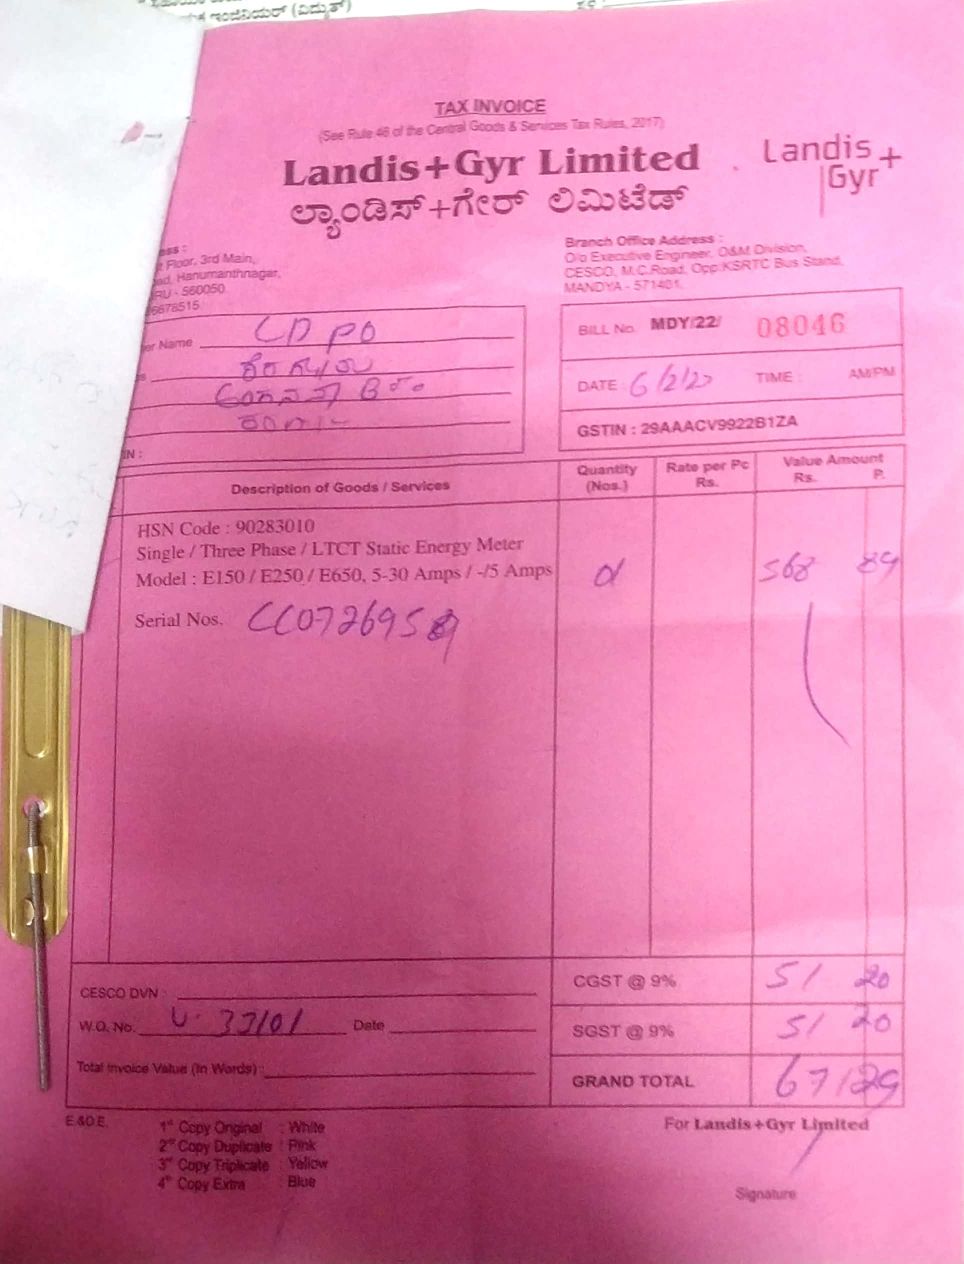 ಇಂಜಿನಿಯರ್ (ವಿದ್ಯುತ್)
TAX INVOICE
(See Rule 46 of the Central Goods & Services Tax Rules, 2017)
Landis+Gyr Limited
Landis+
Gyr
ಲ್ಯಾಂಡಿಸ್+ಗೇರ್ ಲಿಮಿಟೆಡ್
Floor, 3rd Main,
Hanumanthnagar,
- 560050
6678515
Branch Office Address :
O/o Executive Engineer, O&M Division,
CESCO, M.C.Road, Opp.KSRTC Bus Stand,
MANDYA - 571401.
Name CDPO
BILL No. MDY/22/ 08046
DATE : 6/2/23 TIME : AM/PM
GSTIN : 29AAACV9922B1ZA
Description of Goods / Services
Quantity (Nos.)
Rate per Pc Rs.
Value Amount Rs. P.
HSN Code : 90283010
Single / Three Phase / LTCT Static Energy Meter
Model : E150 / E250 / E650, 5-30 Amps / -/5 Amps 568 89
Serial Nos.
CESCO DVN :
CGST @ 9% 51 20
W.O. No. Date
SGST @ 9% 51 20
Total Invoice Value (In Words) :
GRAND TOTAL 671 29
E.&O.E.
1st Copy Original : White
2nd Copy Duplicate : Pink
3rd Copy Triplicate : Yellow
4th Copy Extra : Blue
For Landis+Gyr Limited
Signature